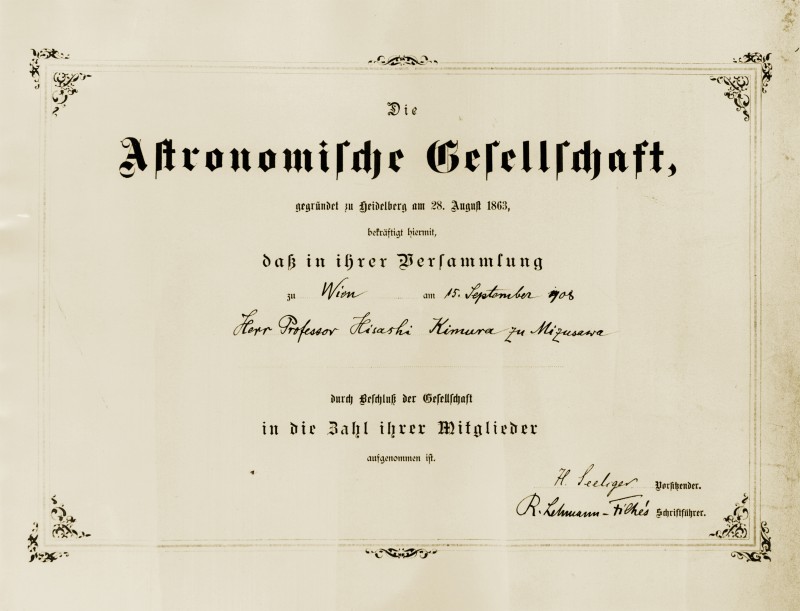 Die
Astronomische Gesellschaft,
gegründet zu Heidelberg am 28. August 1863,
bekräftigt hiermit,
daß in ihrer Versammlung
zu Wien am 15. September 1908
Herr Professor Hisashi Kimura zu Mizusawa
durch Beschluß der Gesellschaft
in die Zahl ihrer Mitglieder
aufgenommen ist.
H. Seeliger Vorsitzender.
R. Lehmann-Filhés Schriftführer.